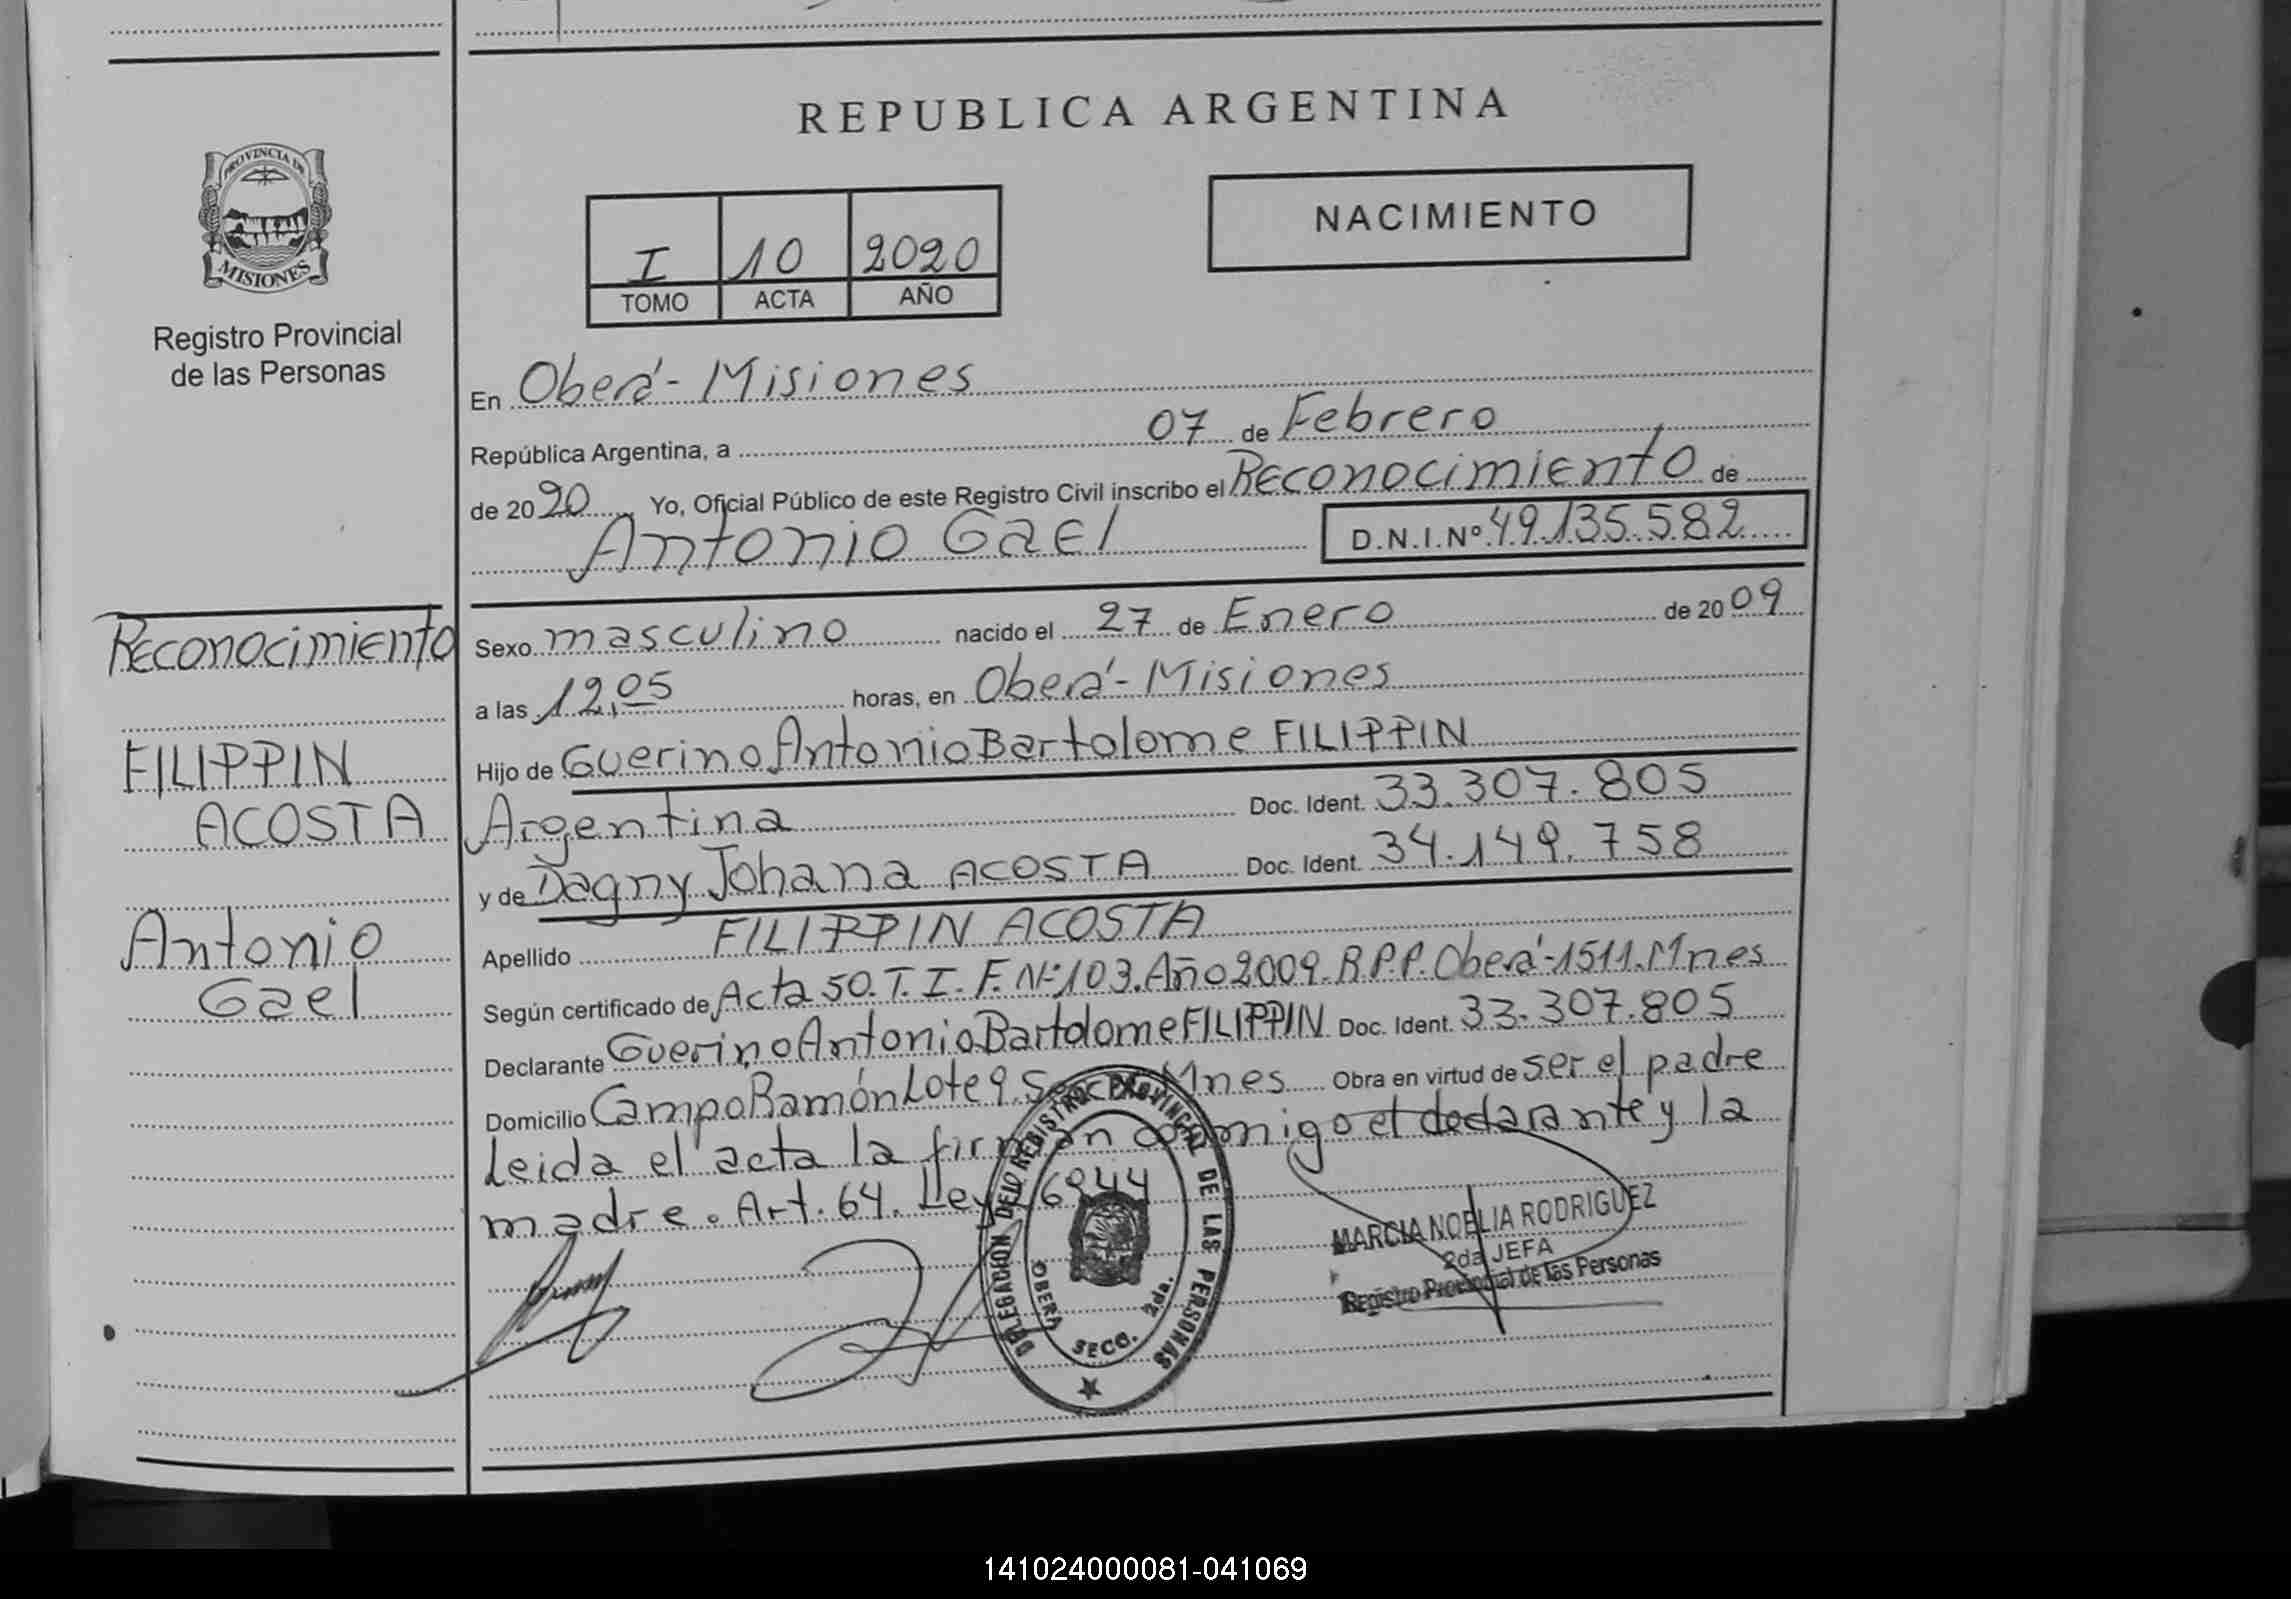 REPUBLICA ARGENTINA
PROVINCIA DE
MISIONES
Registro Provincial
de las Personas
I 10 2020
TOMO ACTA AÑO
NACIMIENTO
En Oberá - Misiones
República Argentina, a 07 de Febrero
de 2020 Yo, Oficial Público de este Registro Civil inscribo el Reconocimiento de
Antonio Gael D.N.I.Nº 49.135.582
Reconocimiento
FILIPPIN
ACOSTA
Antonio
Gael
Sexo masculino nacido el 27 de Enero de 2009
a las 12,05 horas, en Oberá - Misiones
Hijo de Guerino Antonio Bartolome FILIPPIN
Argentina Doc. Ident. 33.307.805
y de Dagny Johana ACOSTA Doc. Ident. 34.149.758
Apellido FILIPPIN ACOSTA
Según certificado de Acta 50. T. I. F. Nº 103. Año 2009. R.P.P. Oberá - 1511. Mnes
Declarante Guerino Antonio Bartolome FILIPPIN Doc. Ident. 33.307.805
Domicilio Campo Ramón Lote 9. Mnes Obra en virtud de ser el padre
Leida el acta la firman conmigo el declarante y la
madre. Art. 64. Ley 6944
DELEGACION DEL REGISTRO PROVINCIAL DE LAS PERSONAS
OBERA
SECC. 2da.
MARCIA NOELIA RODRIGUEZ
2da JEFA
Registro Provincial de las Personas
141024000081-041069